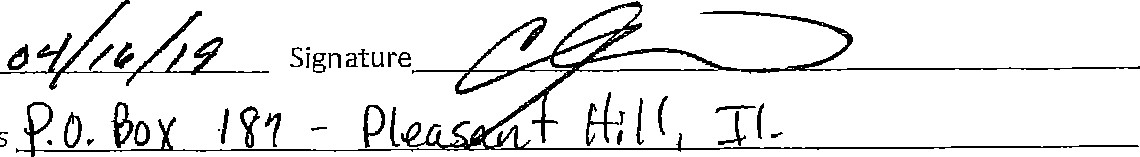 04/16/19 Signature
s P.O. Box 187 - Pleasant Hill, Il.